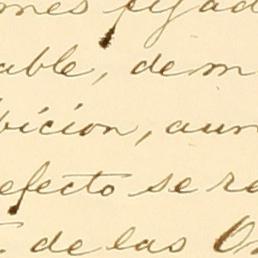 mes fijad
able, de m
bicion, aun
efecto se re
de las O